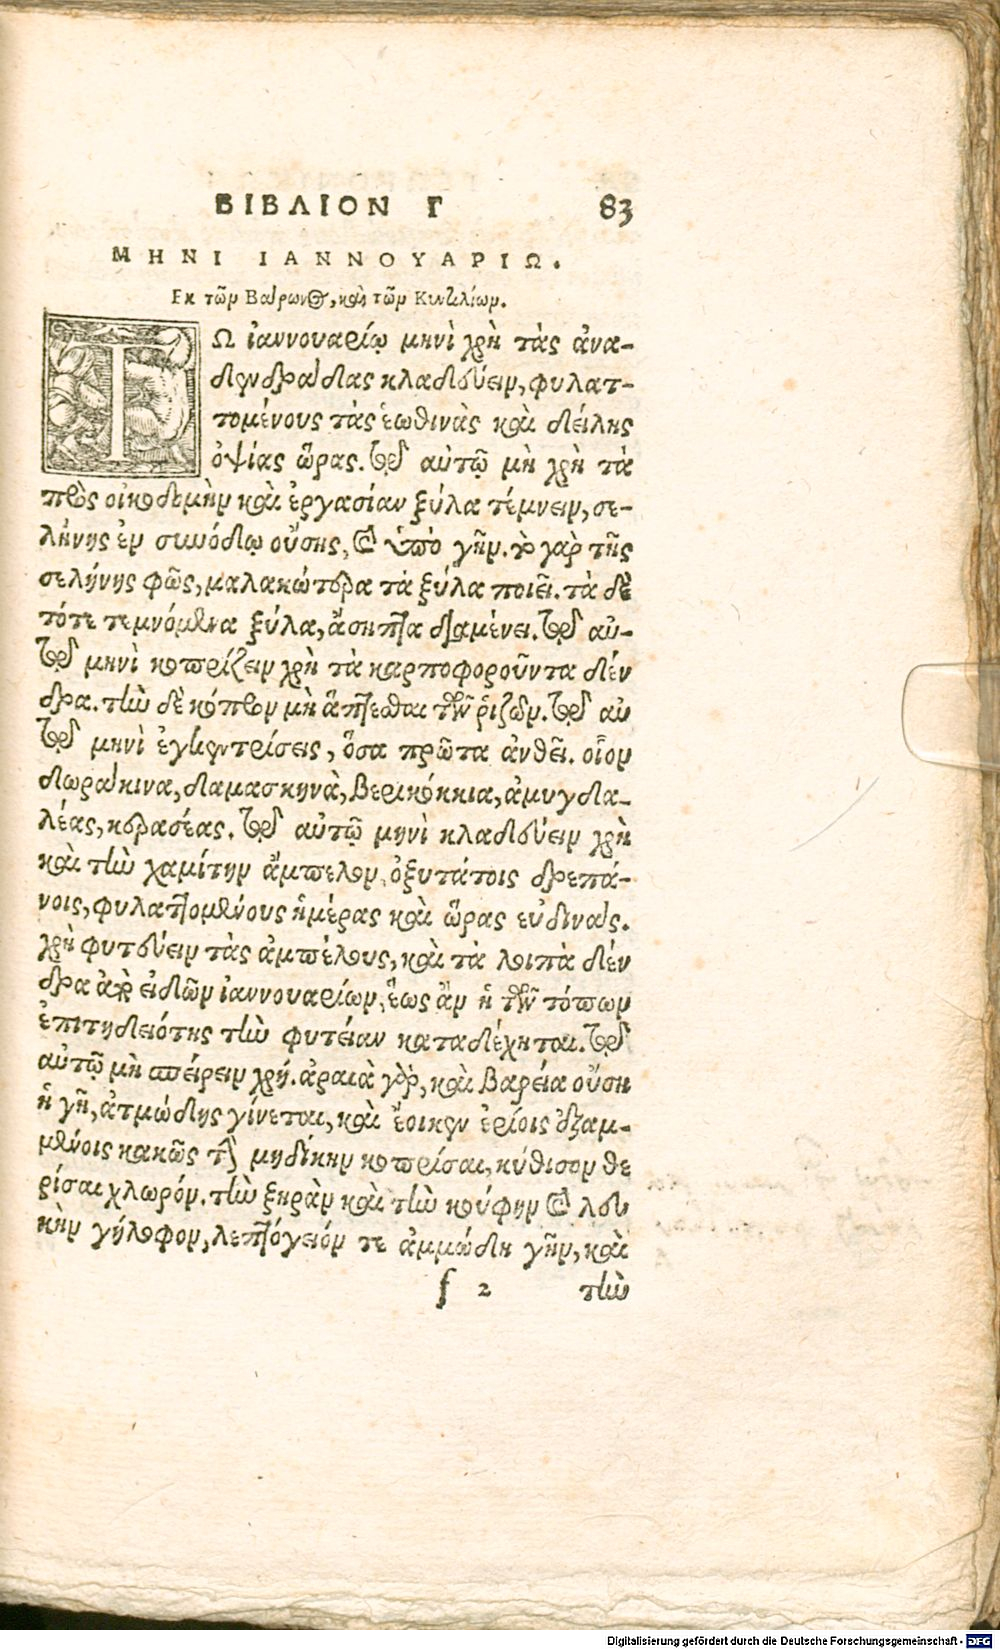 ΒΙΒΛΙΟΝ Γ 83
ΜΗΝΙ ΙΑΝΝΟΥΑΡΙΩ.
Εκ τῶν Βάρωνος, καὶ τῶν Κιντιλίων.
ΤΩ ἰαννουαρίῳ μηνὶ χρὴ τὰς ἀνα-
δενδράδας κλαδεύειν, φυλατ-
τομένους τὰς ἑωθινὰς καὶ δείλης
ὀψίας ὥρας. τῷ δ αὐτῷ μὴ χρὴ τὰ
πρὸς οἰκοδομὴν καὶ ἐργασίαν ξύλα τέμνειν, σε-
λήνης ἐν συνόδῳ οὔσης, καὶ ὑπὸ γῆν. τὸ γὰρ τῆς
σελήνης φῶς, μαλακώτερα τὰ ξύλα ποιεῖ. τὰ δὲ
τότε τεμνόμενα ξύλα, ἄσηπτα διαμένει. τῷ δ αὐ-
τῷ μηνὶ κοπρίζειν χρὴ τὰ καρποφοροῦντα δέν
δρα. τὴν δὲ κόπρον μὴ ἅπτεσθαι τῶν ῥιζῶν. τῷ δ αυ
τῷ μηνὶ ἐγκεντρίσεις, ὅσα πρῶτα ἀνθεῖ. οἷον
δωράκινα, δαμασκηνὰ, βερικόκκια, ἀμυγδα-
λέας, κερασέας. τῷ δ αὐτῷ μηνὶ κλαδεύειν χρὴ
καὶ τὴν χαμίτην ἄμπελον, ὀξυτάτοις δρεπά-
νοις, φυλαττομένους ἡμέρας καὶ ὥρας εὐδινάς.
χρὴ φυτεύειν τὰς ἀμπέλους, καὶ τὰ λοιπὰ δέν
δρα ἀπὸ εἰδῶν ἰαννουαρίων, ἕως ἂν ἡ τῶν τόπων
ἐπιτηδειότης τὴν φυτείαν καταδέχηται. τῷ δ
αὐτῷ μὴ σπείρειν χρή. ἀραιὰ γὰρ, καὶ βαρεία οὖσα
ἡ γῆ, ἀτμώδης γίνεται, καὶ ἔοικεν ἐρίοις ἐξαμ-
μένοις κακῶς τὴν μηδίκην κοπρίσαι, κύθισον θε
ρίσαι χλωρόν. τὴν ξηρὰν καὶ τὴν κούφην καὶ λευ
κὴν γήλοφον, λεπτόγειόν τε ἀμμώδη γῆν, καὶ
f 2 τὴν
Digitalisierung gefördert durch die Deutsche Forschungsgemeinschaft - DFG